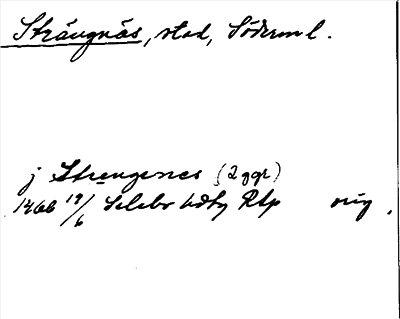 Strängnäs, stad, Söderml.
j Strengenes (2 ggr)
1466 19/6 Selebo hdtg Rtp orig.